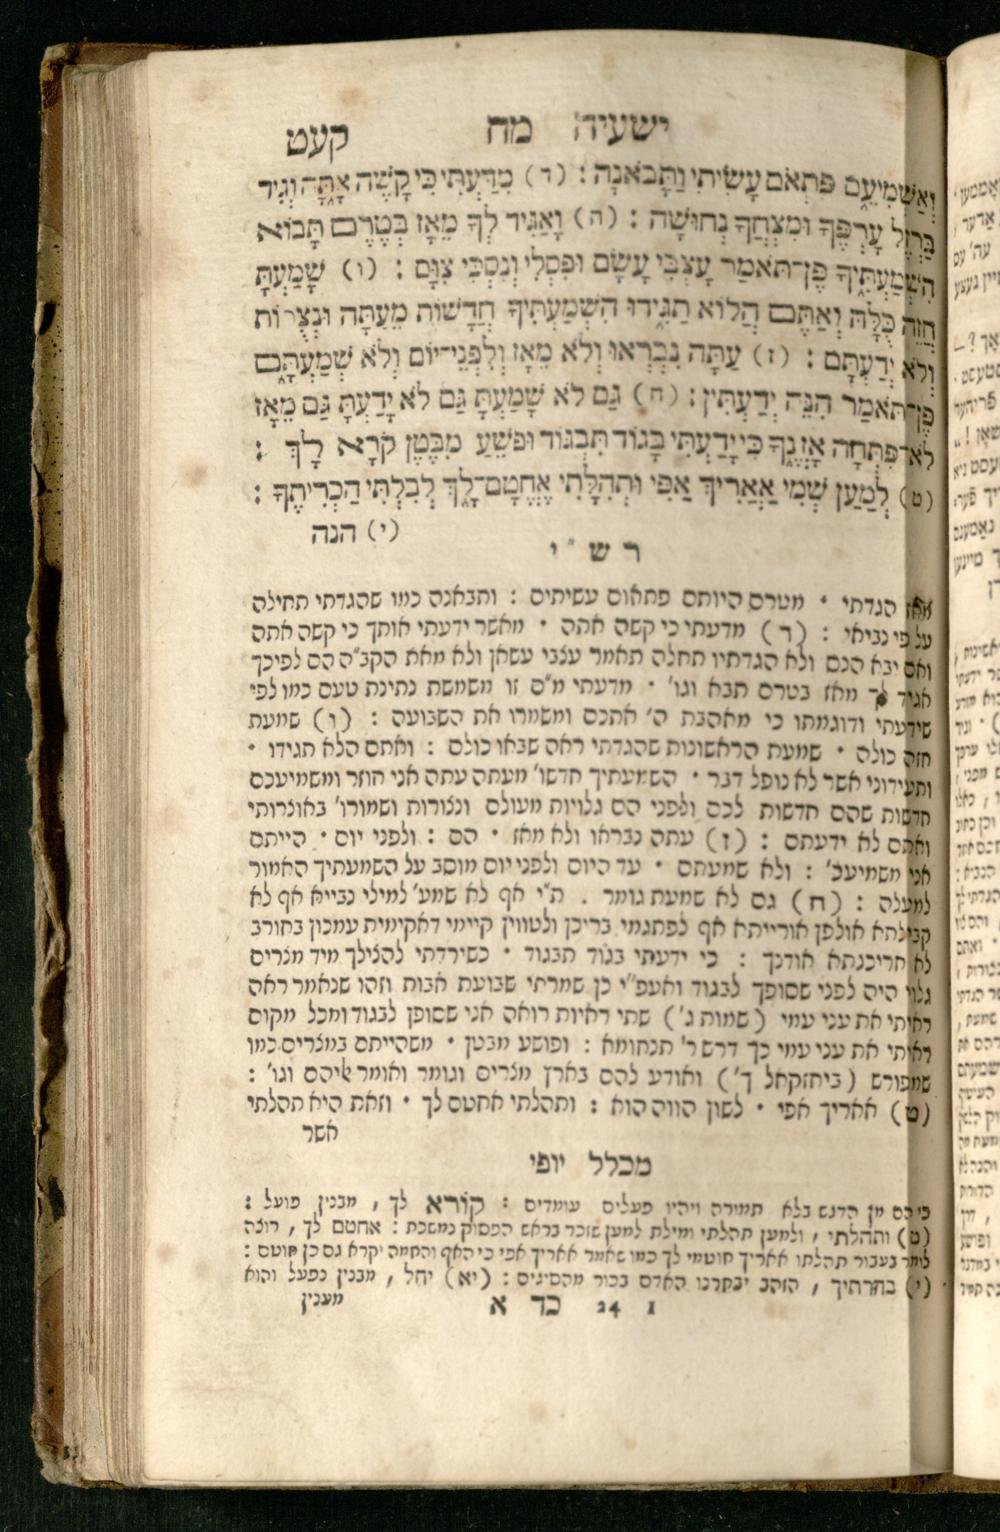 ישעיה מח קעט
וְאַשְׁמִיעֵם פִּתְאֹם עָשִׂיתִי וַתָּבֹאנָה : (ד) מִדַּעְתִּי כִּי קָשֶׁה אָתָּה וְגִיד
בַּרְזֶל עָרְפֶּךָ וּמִצְחֲךָ נְחוּשָׁה : (ה) וָאַגִּיד לְךָ מֵאָז בְּטֶרֶם תָּבוֹא
הִשְׁמַעְתִּיךָ פֶּן־תֹּאמַר עָצְבִּי עָשָׂם וּפִסְלִי וְנִסְכִּי צִוָּם : (ו) שָׁמַעְתָּ
חֲזֵה כֻּלָּהּ וְאַתֶּם הֲלוֹא תַגִּידוּ הִשְׁמַעְתִּיךָ חֲדָשׁוֹת מֵעַתָּה וּנְצֻרוֹת
וְלֹא יְדַעְתָּם : (ז) עַתָּה נִבְרְאוּ וְלֹא מֵאָז וְלִפְנֵי־יוֹם וְלֹא שְׁמַעְתָּם
פֶּן־תֹּאמַר הִנֵּה יְדַעְתִּין : (ח) גַּם לֹא שָׁמַעְתָּ גַּם לֹא יָדַעְתָּ גַּם מֵאָז
לֹא־פִתְּחָה אָזְנֶךָ כִּי יָדַעְתִּי בָּגוֹד תִּבְגּוֹד וּפֹשֵׁעַ מִבֶּטֶן קֹרָא לָךְ :
(ט) לְמַעַן שְׁמִי אַאֲרִיךְ אַפִּי וּתְהִלָּתִי אֶחֱטָם־לָךְ לְבִלְתִּי הַכְרִיתֶךָ :
(י) הנה
רש״י
מאז הגדתי • מטרם היותם פתאום עשיתים : ותבאנה כמו שהגדתי תחילה
על פי נביאי : (ד) מדעתי כי קשה אתה • מאשר ידעתי אותך כי קשה אתה
ואם יבא הנם ולא הגדתיו תחלה תאמר עצבי עשאן ולא מאת הקב״ה הם לפיכך
אגיד לך מאז בטרם תבא וגו׳ • מדעתי מ״ם זו משמשת נתינת טעם כמו לפי
שידעתי ודוגמתו כי מאהבת ה׳ אתכם ומשמרו את השבועה : (ו) שמעת
חזה כולה • שמעת הראשונות שהגדתי ראה שבאו כולם : ואתם הלא תגידו •
ותעידוני אשר לא נופל דבר • השמעתיך חדשו׳ מעתה עתה אני חוזר ומשמיעכם
חדשות שהם חדשות לכם ולפני הם גלויות מעולם ונצורות ושמורו׳ באוצרותי
ואתם לא ידעתם : (ז) עתה נבראו ולא מאז • הם : ולפני יום • הייתם
אני משמיעכ׳ : ולא שמעתם • עד היום ולפני יום מוסב על השמעתיך האמור
למעלה : (ח) גם לא שמעת גומר . ת״י אף לא שמע׳ למילי נבייא אף לא
קבילתא אולפן אורייתא אף לפתגמי ברכין ולטווין קיימי דאקימית עמכון בחורב
לא אריכנתא אודנך : כי ידעתי בגוד תבגוד • כשירדתי להצילך מיד מצרים
גלוי היה לפני שסופך לבגוד ואעפ״י כן שמרתי שבועת אבות וזהו שנאמר ראה
ראיתי את עני עמי (שמות ג׳) שתי ראיות רואה אני שסופן לבגוד ומכל מקום
ראיתי את עני עמי כך דרש ר׳ תנחומא : ופושע מבטן • משהייתם במצרים כמו
שמפורש (ביחזקאל ך׳) ואודע להם בארץ מצרים וגומר ואומר אליהם וגו׳ :
(ט) אאריך אפי • לשון הווה הוא : ותהלתי אחטם לך • וזאת היא תהלתי
אשר
מכלל יופי
מן הדגש בלא תמורה ויהיו פעלים עומדים : קוֹרא לך , מבנין פועל :
(ט) ותהלתי , ולמען תהלתי ומילת למען שזכר בראש הפסוק נמשכת : אחטם לך , רוצה
לומר בעבור תהלתו אאריך חוטמי לך כמו שאמר אאריך אפי כי האף והחמה יקרא גם כן חוטם :
(י) בחרתיך , הזהב יבקרנו האדם בכור מהסיגים : (יא) יחל , מבנין נפעל והוא
1 24 כד א מענין